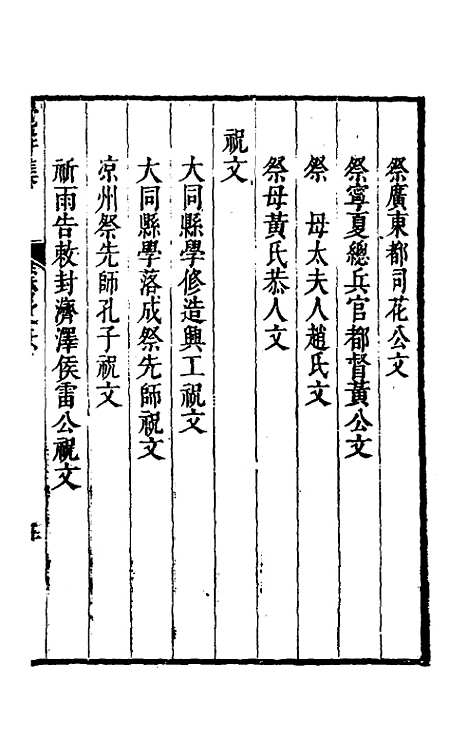 祭廣東都司花公文
祭寧夏總兵官都督黃公文
祭　母太夫人趙氏文
祭母黃氏恭人文
祝文
大同縣學修造興工祝文
大同縣學落成祭先師祝文
凉州祭先師孔子祝文
祈雨告敕封濟澤侯雷公祝文